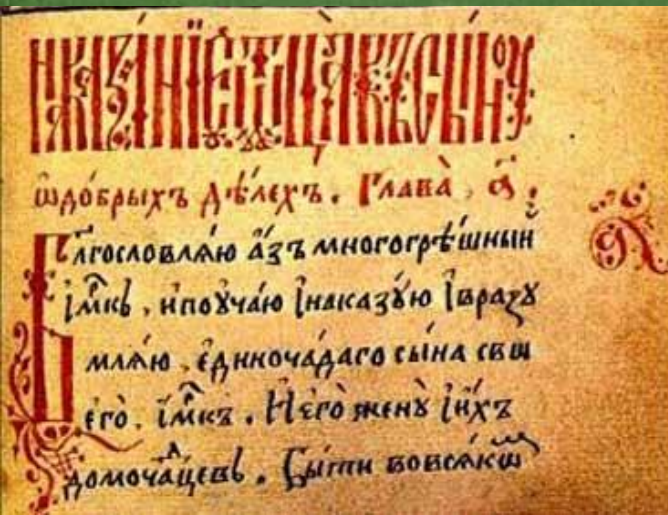 ѡдо́брыхъ дѣ́лехъ. Глава̀, а҃:
Блгословлѧ́ю а҆́зъ многогрѣ́шныи
і҆м҃къ, ипоуча́ю і҆наказꙋ́ю і҆вразꙋ
млѧ́ю. е҆диноча́даго сы́на свѡ
его̀. і҆м҃къ. И҆его̀ женꙋ̀ і҆и҆́хъ
домоча́дцевъ. Бы́ти вовсѧкѡ